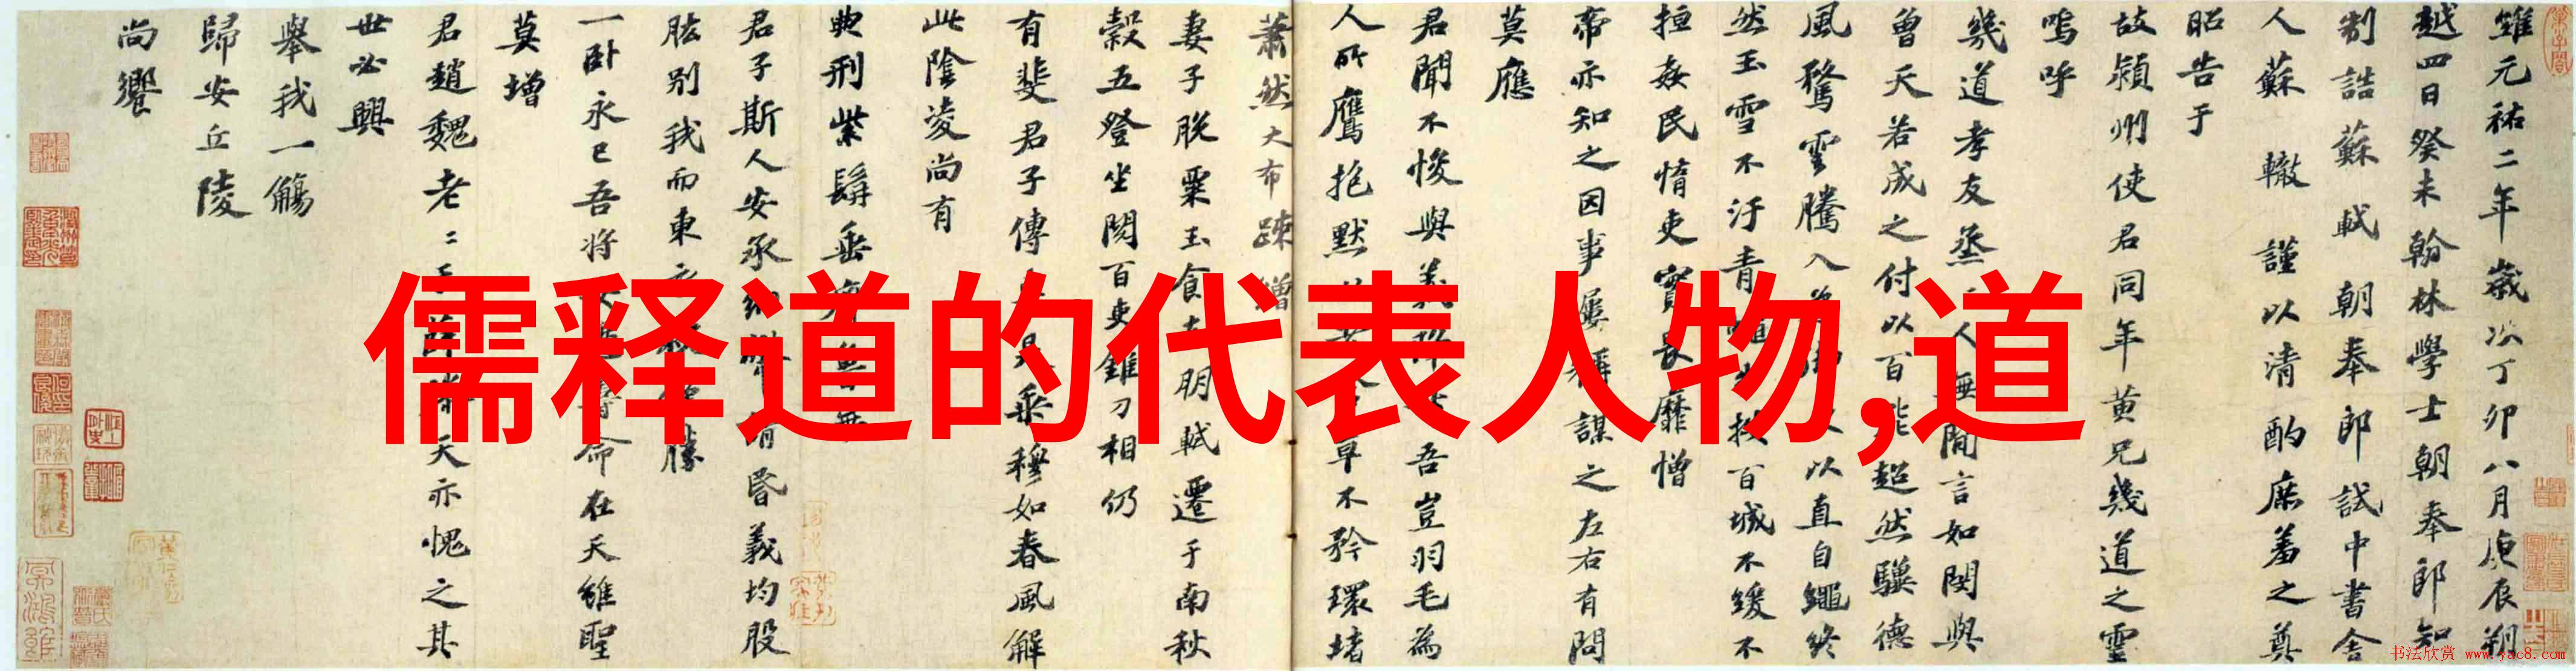 儒释道的代表人物,道
維元祐二年歲次丁卯八月庚辰朔
越四日癸未翰林學士朝奉郎知
制誥蘇軾朝奉郎試中書舍
人蘇轍謹以清酌庶羞之奠
昭告于
故潁州使君同年黃兄幾道之靈
嗚呼
幾道孝友烝人無間言如閔與
曾天若成之付以百能超然驥德
風騖雲騰入以直自繩終
然玉雪不汙青按百城不緩不
擾姦民惰吏實畏靡憎
帝亦知之因事屢稱謀之左右有問
莫應
君聞不悛與義吾豈羽毛為
人所鷹抱默不矜環堵
蕭然大布疎繒
妻子脫粟玉食友朋軾遷于南秋
穀五登坐閱百吏錐刀相仍
有斐君子傳是乘穆如春風解
此陰凌尚有
典刑紫髯垂膺無
君子斯人安承納幣請昏義均股
肱別我而東勝
一臥永已吾將命在天雖聖
莫增
君趙魏老〻于薛滕天亦愧之其
世必興
舉我一觴
歸安丘陵
尚饗
书法欣赏 www.yac8.com